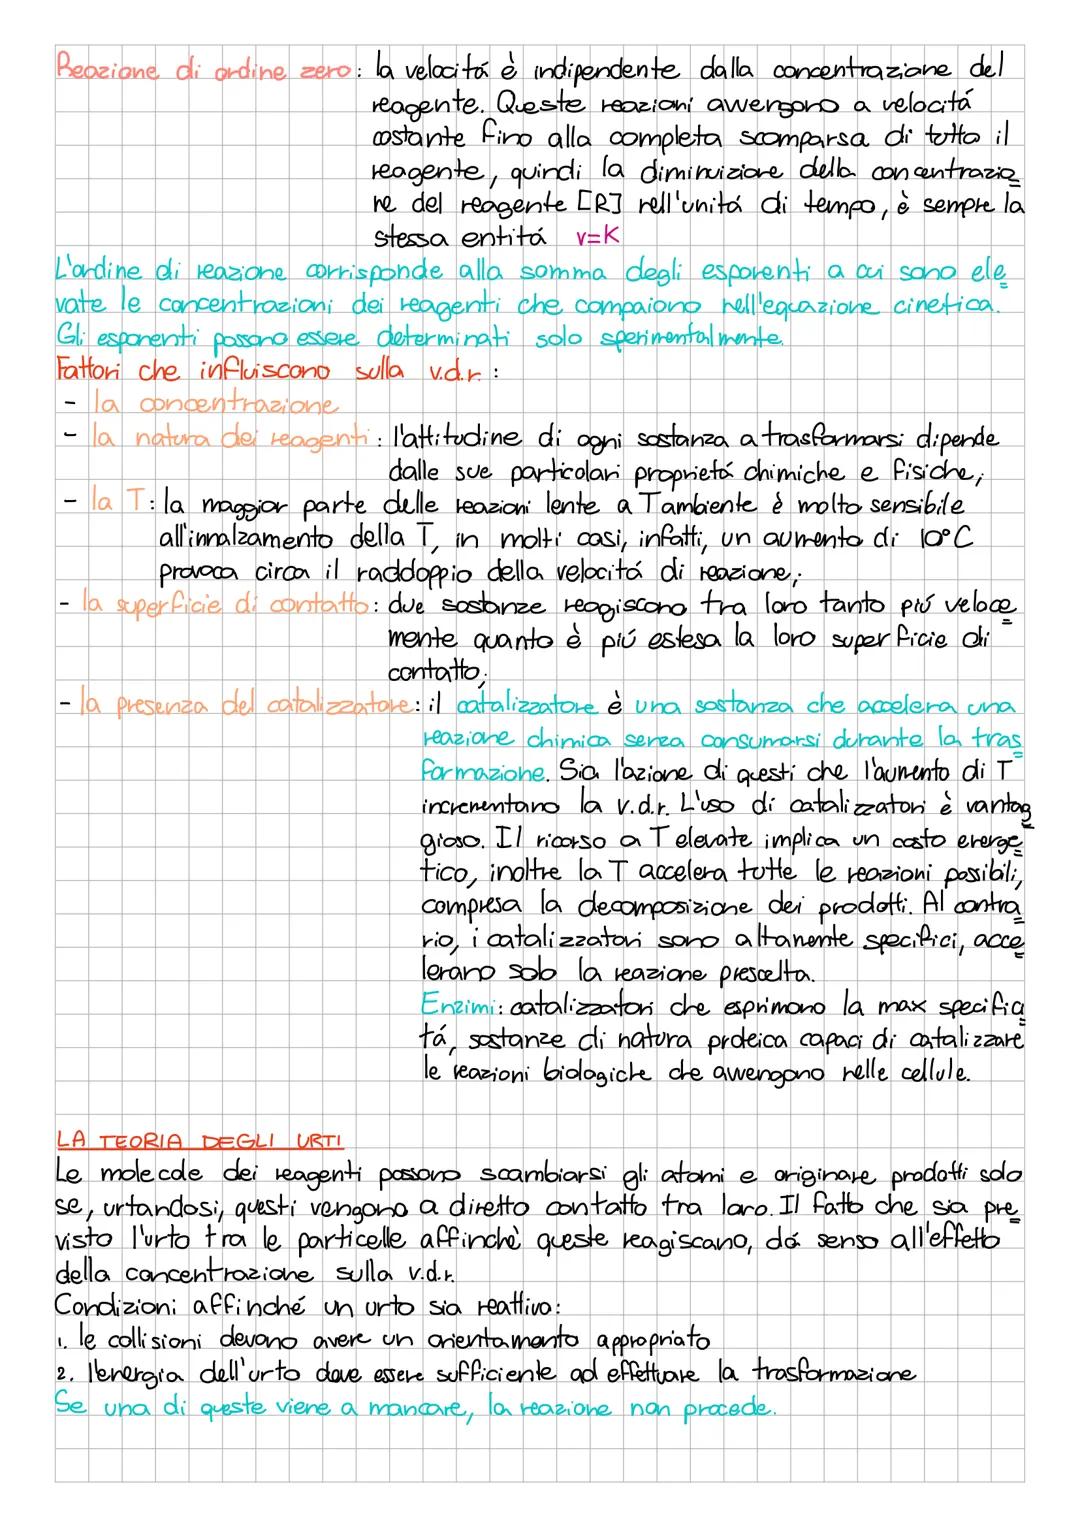 Reazione di ordine zero: la velocitá è indipendente dalla concentrazione del
reagente. Queste reazioni avvengono a velocitá
costante fino alla completa scomparsa di tutto il
reagente, quindi la diminuizione della concentrazio
ne del reagente [R] nell'unitá di tempo, è sempre la
stessa entitá v=K
L'ordine di reazione corrisponde alla somma degli esponenti a cui sono ele
vate le concentrazioni dei reagenti che compaiono nell'equazione cinetica.
Gli esponenti possono essere determinati solo sperimentalmente.
Fattori che influiscono sulla v.d.r.:
- la concentrazione
- la natura dei reagenti: l'attitudine di ogni sostanza a trasformarsi dipende
dalle sue particolari proprietá chimiche e fisiche;
- la T: la maggior parte delle reazioni lente a T ambiente è molto sensibile
all'innalzamento della T, in molti casi, infatti, un aumento di 10°C
provoca circa il raddoppio della velocitá di reazione;
- la superficie di contatto: due sostanze reagiscono tra loro tanto piú veloce
mente quanto è piú estesa la loro superficie di
contatto;
- la presenza del catalizzatore: il catalizzatore è una sostanza che accelera una
reazione chimica senza consumarsi durante la tras
formazione. Sia l'azione di questi che l'aumento di T
incrementano la v.d.r. L'uso di catalizzatori è vantag
gioso. Il ricorso a T elevate implica un costo energe
tico, inoltre la T accelera tutte le reazioni possibili,
compresa la decomposizione dei prodotti. Al contra
rio, i catalizzatori sono altamente specifici, acce
lerano solo la reazione prescelta.
Enzimi: catalizzatori che esprimono la max specifici
tá, sostanze di natura proteica capaci di catalizzare
le reazioni biologiche che avvengono nelle cellule.
LA TEORIA DEGLI URTI
Le molecole dei reagenti possono scambiarsi gli atomi e originare prodotti solo
se, urtandosi, questi vengono a diretto contatto tra loro. Il fatto che sia pre
visto l'urto tra le particelle affinchè queste reagiscano, dá senso all'effetto
della concentrazione sulla v.d.r.
Condizioni affinché un urto sia reattivo:
1. le collisioni devono avere un orientamento appropriato
2. l'energia dell'urto deve essere sufficiente ad effettuare la trasformazione
Se una di queste viene a mancare, la reazione non procede.